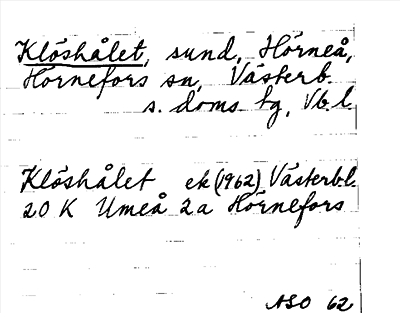 Klöshålet, sund, Hörneå,
Hörnefors sn, Västerb.
s. doms. tg, Vb.l.
Klöshålet ek (1962) Västerb.l.
20 K Umeå 2a Hörnefors
ASO 62